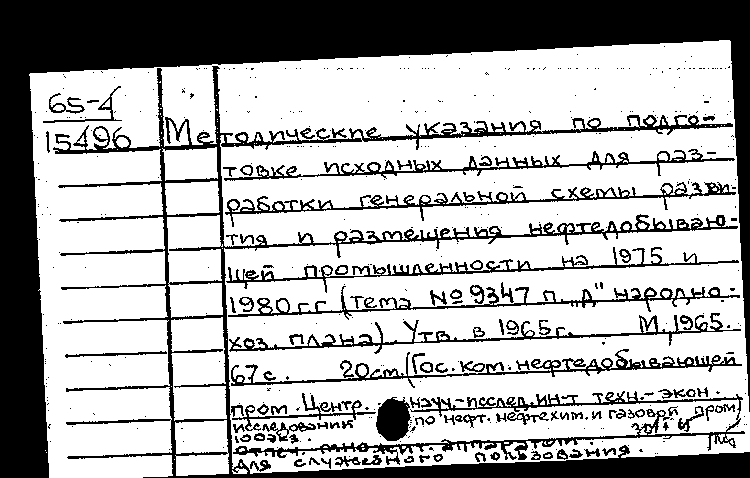 65-4
15496
Методические указания по подго-
товке исходных данных для раз-
работки генеральной схемы разви-
тия и размещения нефтедобываю-
щей промышленности на 1975 и
1980 г.г (тема № 9347 п. „д" народно-
хоз. плана). Утв. в 1965г. М., 1965.
67 с. 20 см. (Гос. ком. нефтедобывающей
пром. Центр. научн.-исслед. ин-т техн.-экон.
исследований по нефт. нефтехим. и газовой пром)
100 экз.
отпеч. множит. аппаратом.
Для служебного пользования.